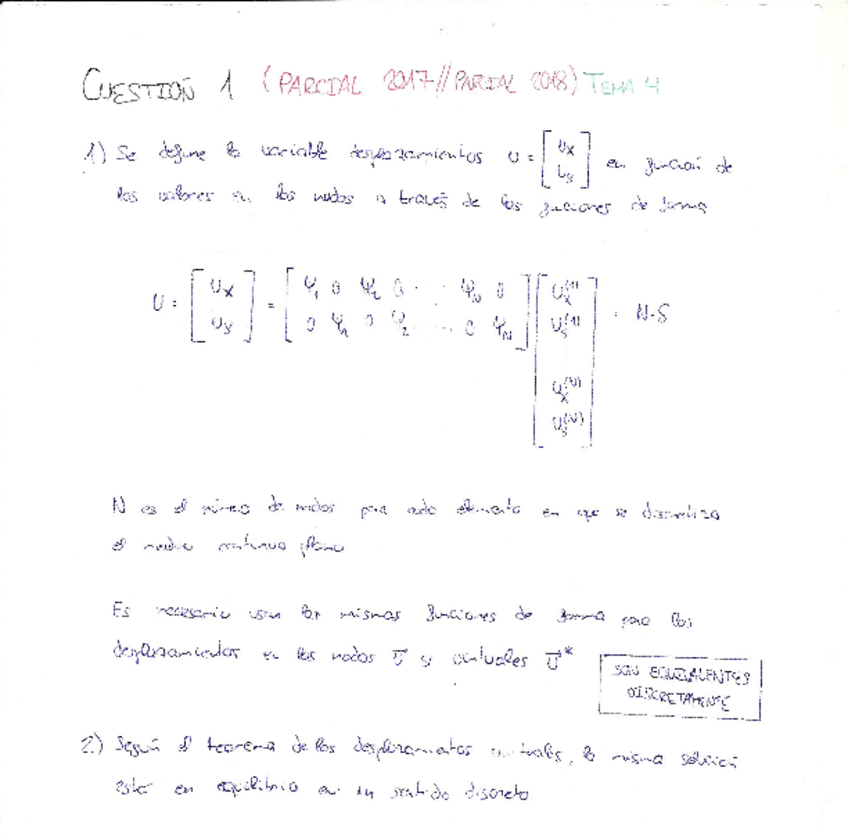 CUESTIÓN 1 (PARCIAL 2017//PARCIAL 2018) TEMA 4
1) Se define la variable desplazamientos U = [ux uy] en función de
los valores en los nodos a través de las funciones de forma
U = [ux uy] = [Ψ1 0 Ψ2 0 ... ΨN 0 / 0 Ψ1 0 Ψ2 ... 0 ΨN] [ux(1) uy(1) ux(N) uy(N)] = N·S
N es el número de nodos para cada elemento en que se discretiza
el medio continuo plano
Es necesario usar las mismas funciones de forma para los
desplazamientos en los nodos U y virtuales U*
SON EQUIVALENTES
DISCRETAMENTE
2) Según el teorema de los desplazamientos virtuales, la misma solución
está en equilibrio en un sentido discreto